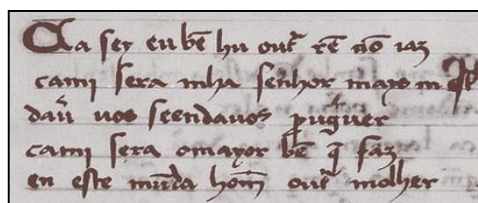 Ca sey eu bẽ hu out̃ rẽ nõ iaz
cami sera mha senhor mayor m
dauỹ uos seendauos ꝑ uguer
cami sera omayor bẽ q̃ faz
en este mũda hom̃ out̃ molher